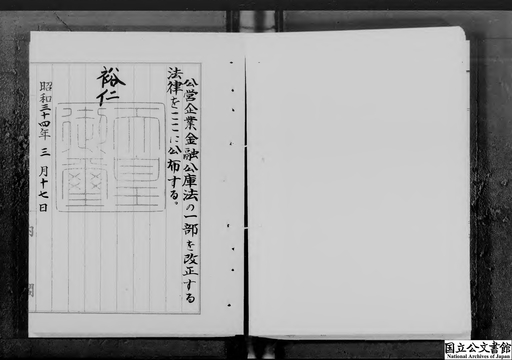 公営企業金融公庫法の一部を改正する
法律をここに公布する。
裕仁
天皇
御璽
昭和三十四年三月十七日
内閣
国立公文書館
National Archives of Japan